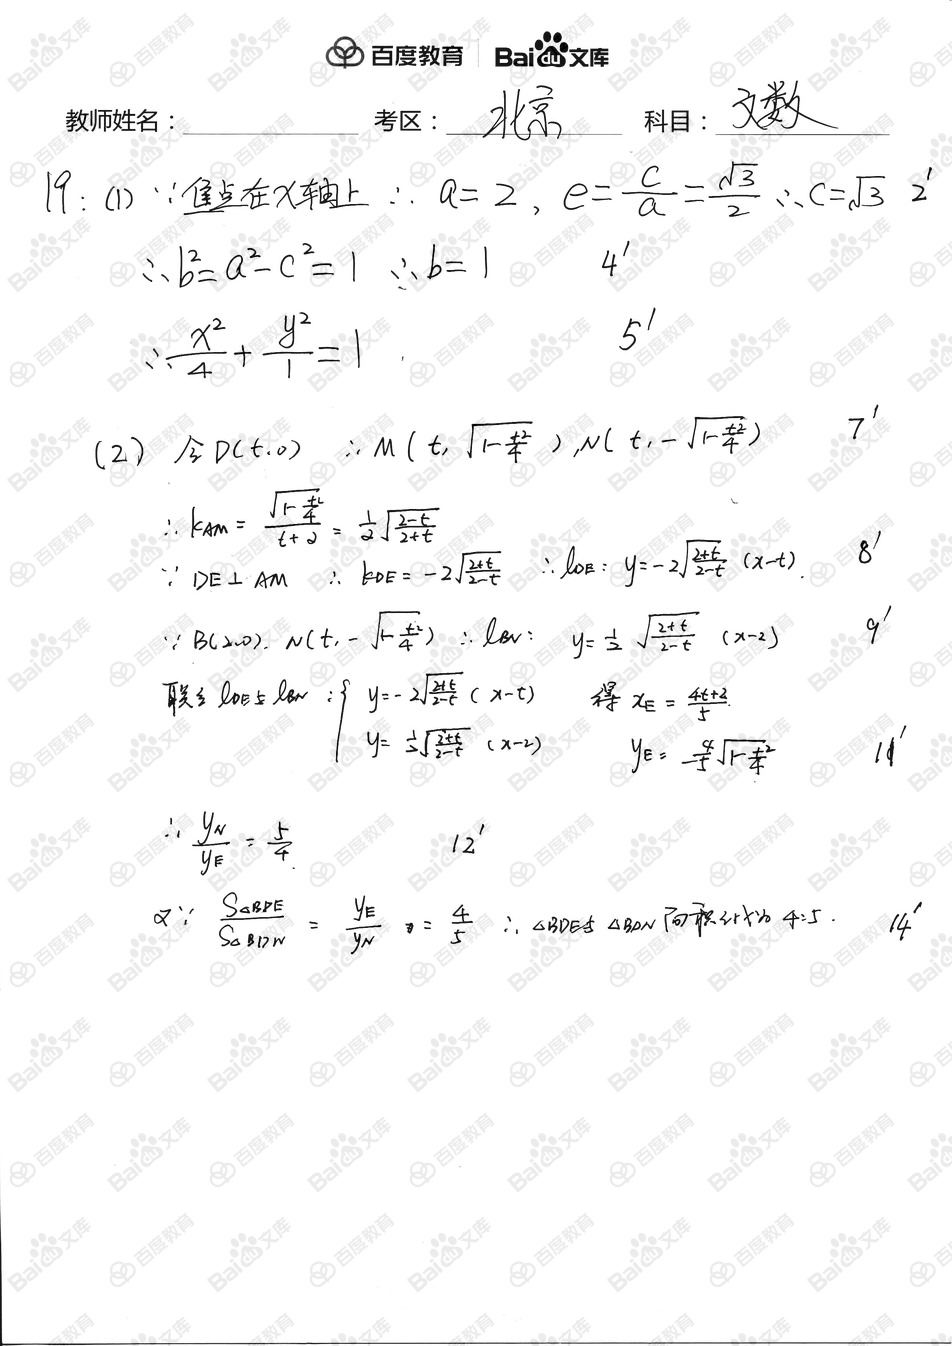 百度教育 Bai du 文库
教师姓名： 考区：北京 科目：文数
19: (1) ∵焦点在X轴上 ∴ a=2, e=c/a=√3/2 ∴c=√3 2'
∴b²=a²-c²=1 ∴b=1 4'
∴x²/4+y²/1=1 5'
(2) 令D(t,0) ∴M(t, √(1-t²/4)), N(t, -√(1-t²/4)) 7'
∴kAM=√(1-t²/4)/(t+2)=1/2√((2-t)/(2+t))
∵DE⊥AM ∴kDE=-2√((2+t)/(2-t)) ∴lDE: y=-2√((2+t)/(2-t))(x-t). 8'
∵B(2,0). N(t, -√(1-t²/4)) ∴lBN: y=1/2√((2+t)/(2-t))(x-2) 9'
联立lDE与lBN: { y=-2√((2+t)/(2-t))(x-t) 得 xE=(4t+2)/5.
y=1/2√((2+t)/(2-t))(x-2) yE=-4/5√(1-t²/4) 11'
∴yN/yE=5/4. 12'
又∵ S△BDE/S△BDN=yE/yN=4/5 ∴△BDE与△BDN面积之比为4:5. 14'